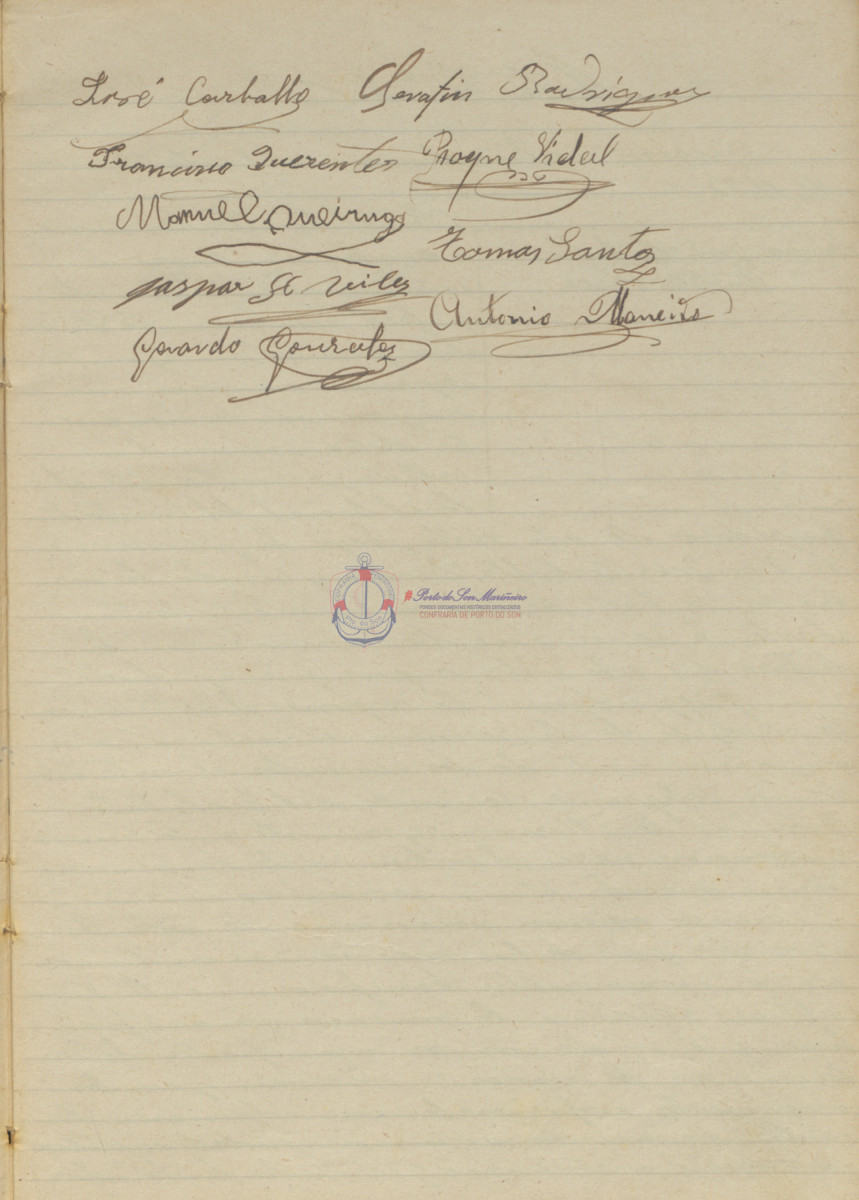 José Carballo Serafin Rodriguez
Francisco Querentes Vidal
Manuel Queiruga
Tomas Santos
gaspar
Antonio Maneiro
Gerardo Gonzalez
Porto do Son Mariñeiro
FONDOS DOCUMENTAIS HISTÓRICOS DIXITALIZADOS
CONFRARÍA DE PORTO DO SON